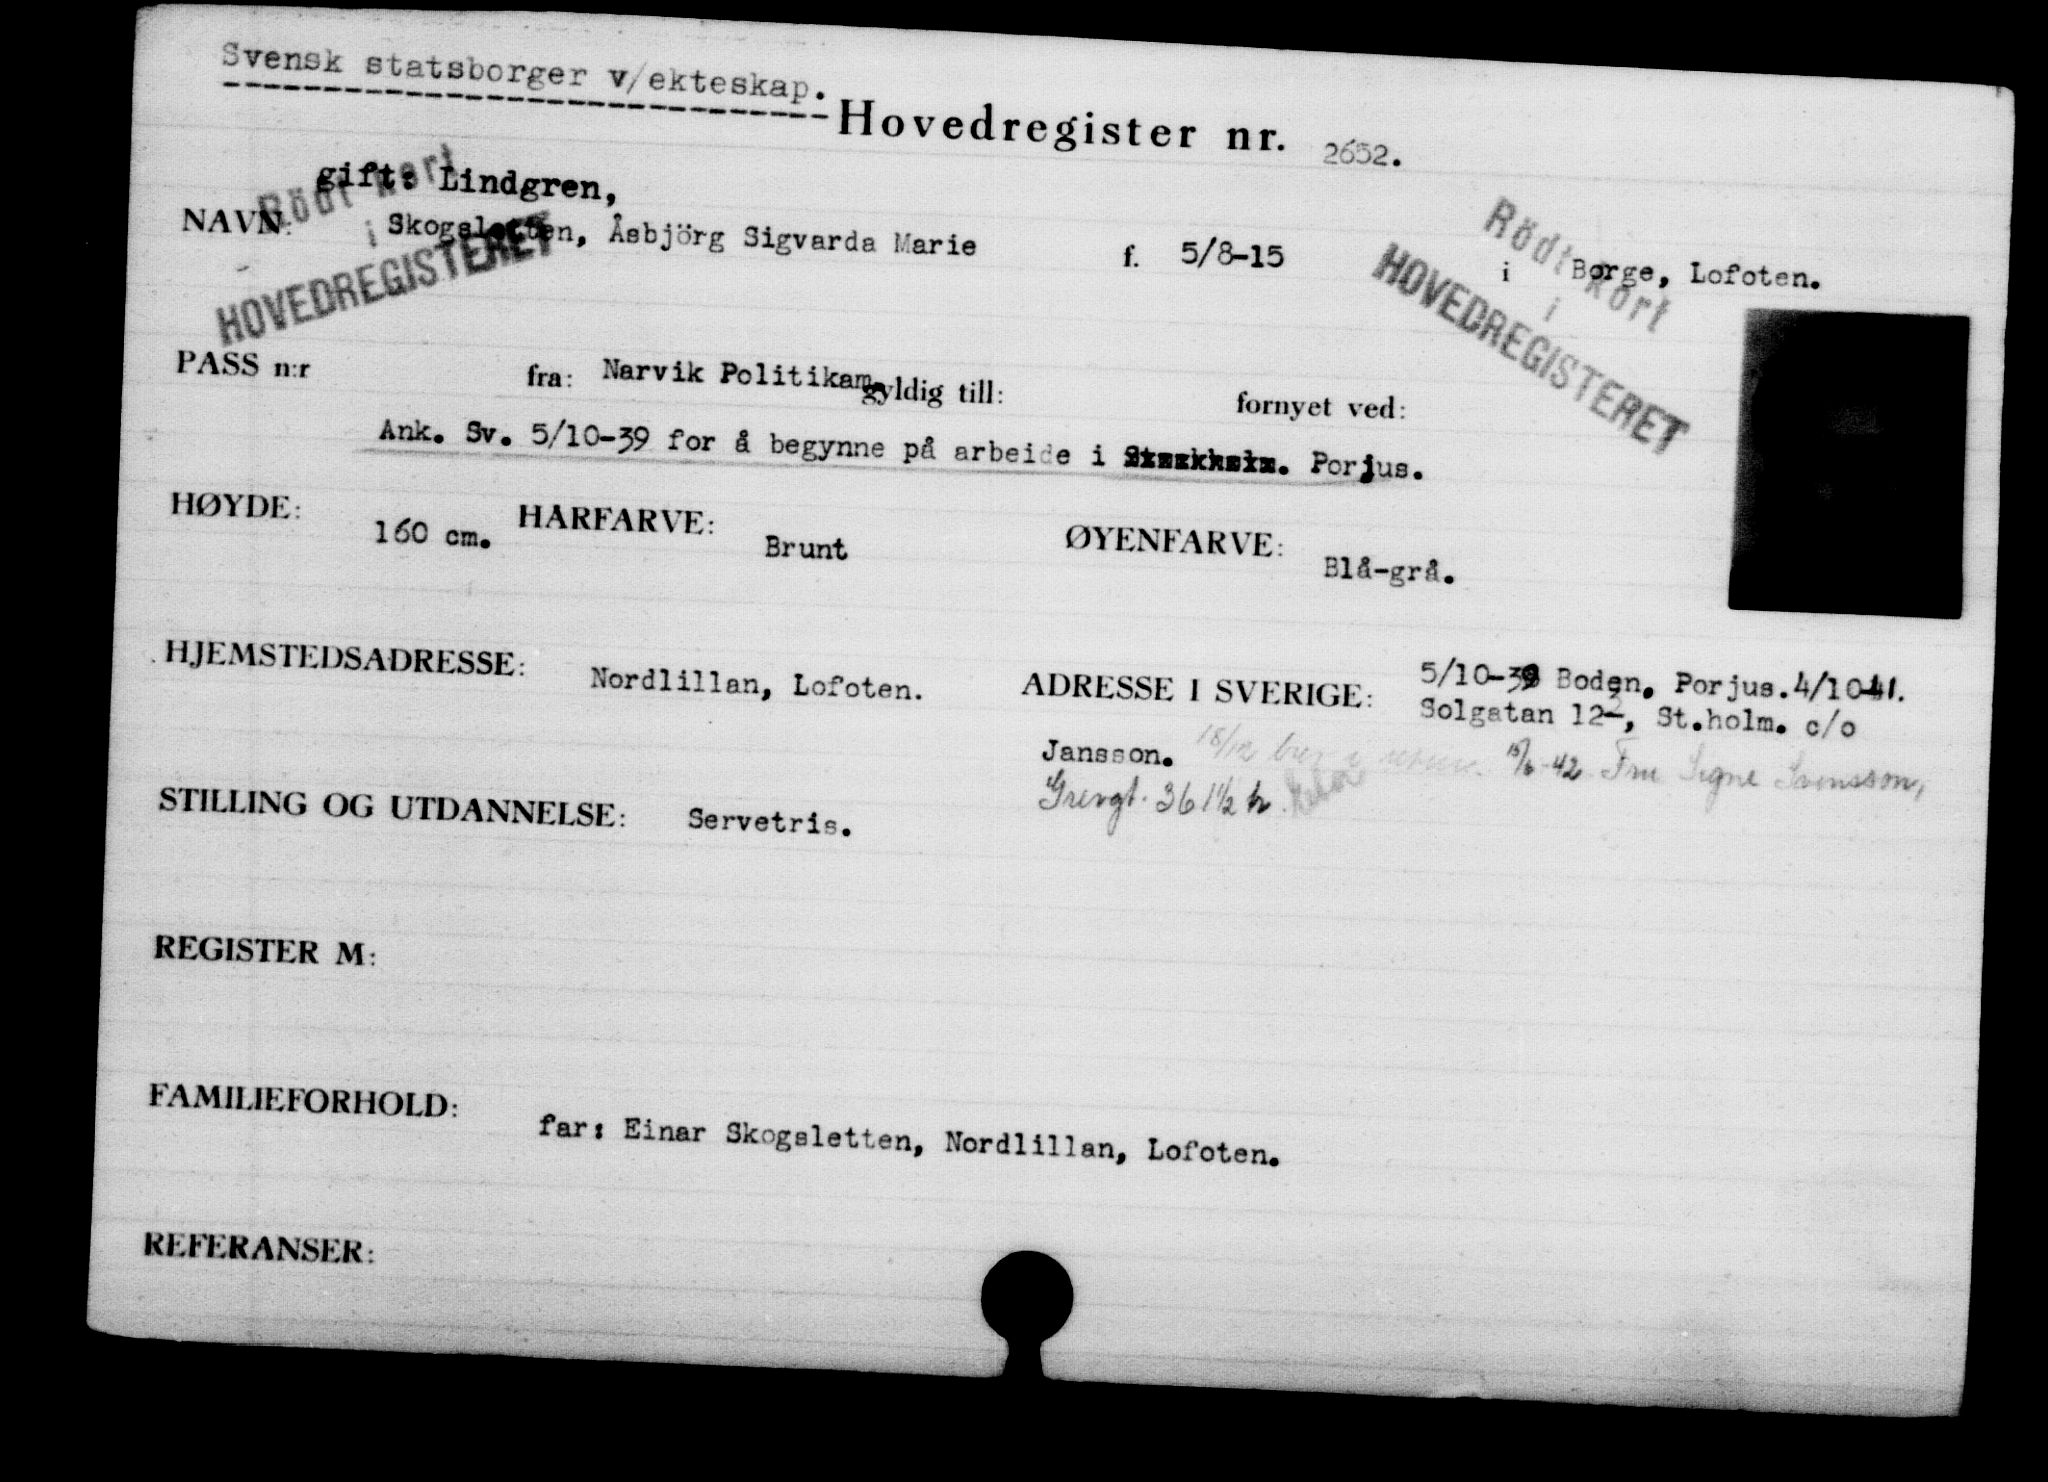 Svensk statsborger v/ekteskap.
Hovedregister nr. 2652.
gift: Lindgren,
Rödt kort
i
HOVEDREGISTERET
NAVN: Skogsletten, Åsbjörg Sigvarda Marie f. 5/8-15 i Borge, Lofoten.
Rödt kort
i
HOVEDREGISTERET
PASS n:r fra: Narvik Politikam. gyldig till: fornyet ved:
Ank. Sv. 5/10-39 for å begynne på arbeide i Stockholm. Porjus.
HØYDE: 160 cm. HARFARVE: Brunt ØYENFARVE: Blå-grå.
HJEMSTEDSADRESSE: Nordlillan, Lofoten. ADRESSE I SVERIGE: 5/10-39 Boden, Porjus. 4/10-41.
Solgatan 12 2, St.holm. c/o
Jansson. 18/12 15/6-42 Fru Signe Svensson,
36 1 1/2 tr.
STILLING OG UTDANNELSE: Servetris.
REGISTER M:
FAMILIEFORHOLD: far: Einar Skogsletten, Nordlillan, Lofoten.
REFERANSER: